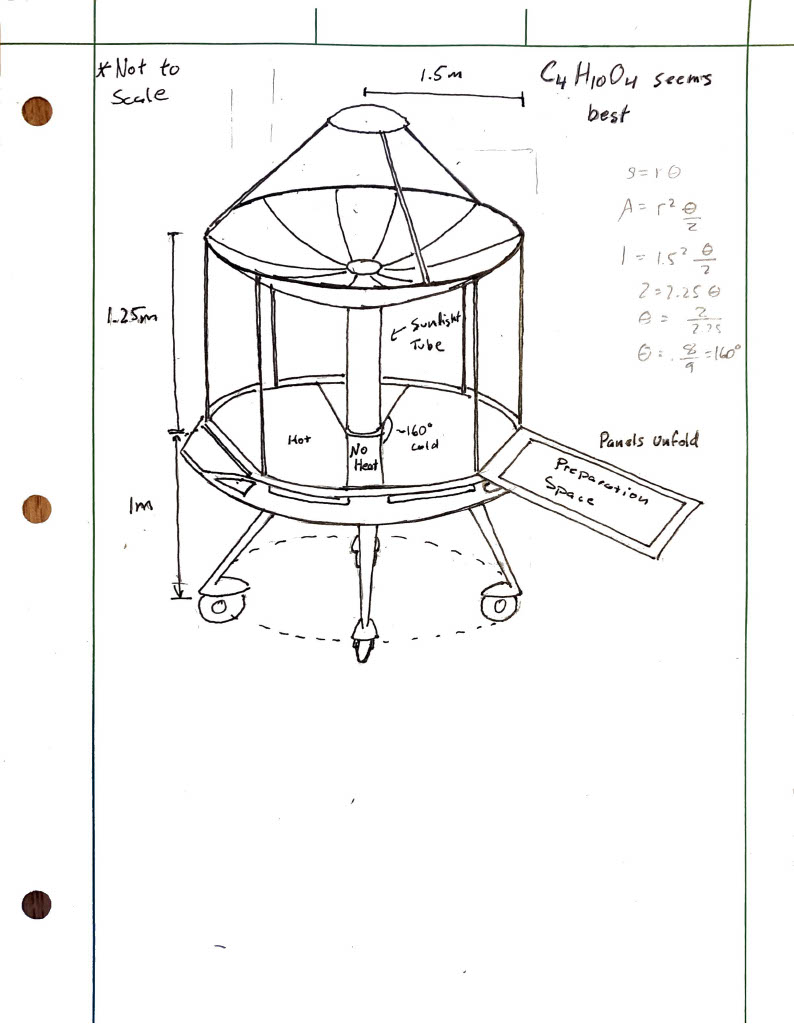 *Not to
Scale
1.5m
C4H10O4 seems
best
S=rθ
A=r² θ/2
1=1.5² θ/2
2=2.25θ
θ= 2/2.25
θ= 8/9=160°
1.25m
Sunlight
Tube
Hot
No
Heat
~160°
Cold
Panels Unfold
Preparation
Space
1m